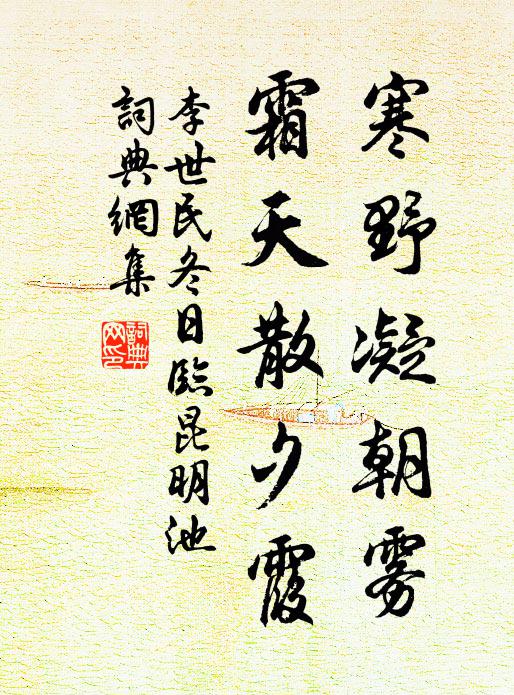 寒野凝朝雾
霜天散夕霞
李世民冬日臨昆明池
詞典網集
詞典
网印